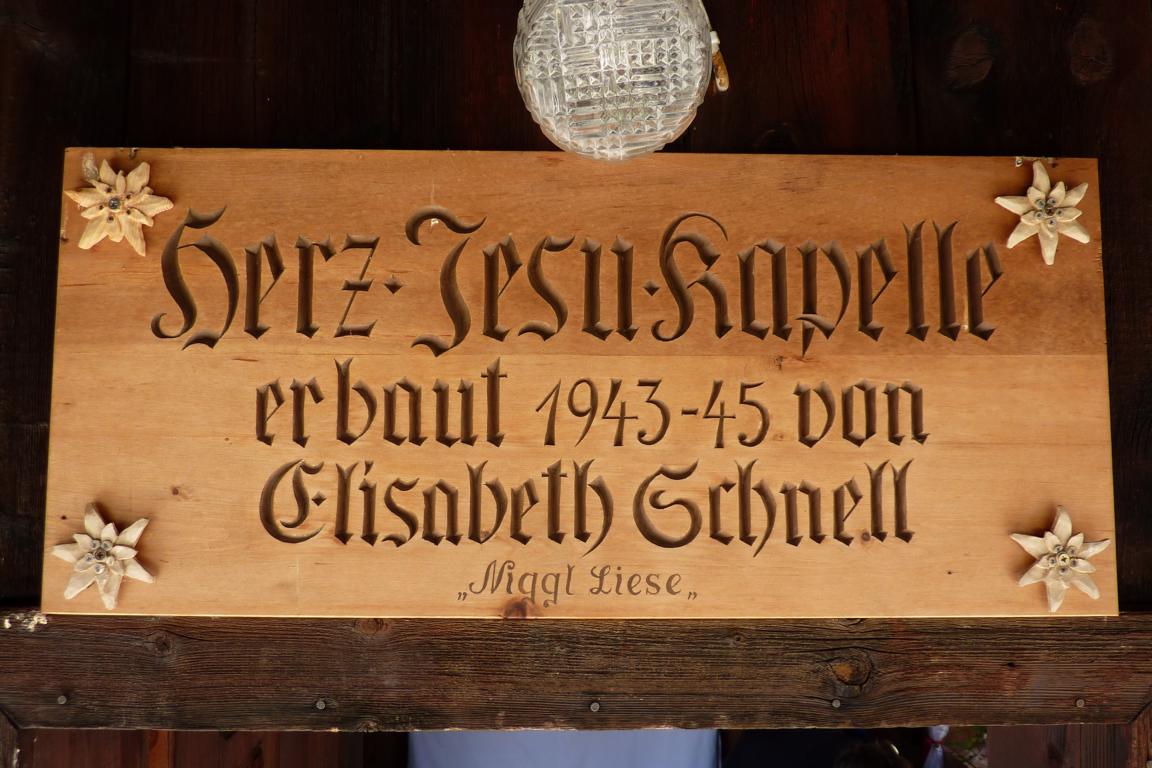 Herz·Jesu·Kapelle
erbaut 1943-45 von
Elisabeth Schnell
„Niggl Liese„